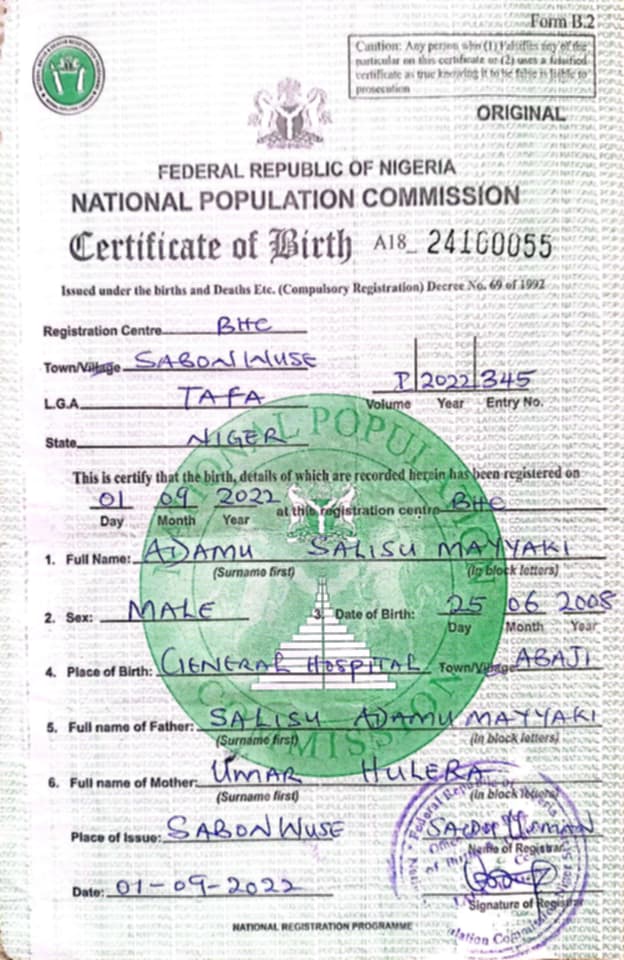 Form B.2
Caution: Any person who (1) Falsifies any of the
particular on this certificate or (2) uses a falsified
certificate as true knowing it to be false is liable to
prosecution
ORIGINAL
FEDERAL REPUBLIC OF NIGERIA
NATIONAL POPULATION COMMISSION
Certificate of Birth A18_ 24100055
Issued under the births and Deaths Etc. (Compulsory Registration) Decree No. 69 of 1992
Registration Centre BHC
Town/Village SABON WUSE
L.G.A TAFA
P 2022 345
Volume Year Entry No.
State NIGER
This is certify that the birth, details of which are recorded herein has been registered on
01 09 2022 at this registration centre BHC
Day Month Year
1. Full Name: ADAMU SALISU MAYYAKI
(Surname first) (in block letters)
2. Sex: MALE 3. Date of Birth: 25 06 2008
Day Month Year
4. Place of Birth: GENERAL HOSPITAL Town/Village ABAJI
5. Full name of Father: SALISU ADAMU MAYYAKI
(Surname first) (in block letters)
6. Full name of Mother: UMAR HULERA
(Surname first) (in block letters)
Place of Issue: SABON WUSE
Name of Registrar
Date: 01-09-2022
Signature of Registrar
NATIONAL REGISTRATION PROGRAMME
NATIONAL POPULATION COMMISSION